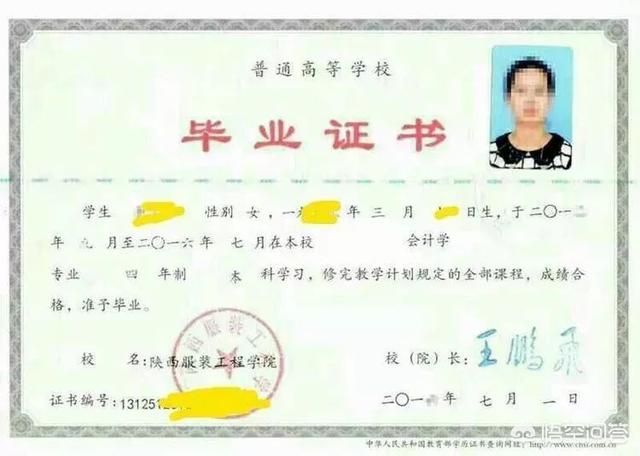 普通高等学校
毕业证书
学生 性别 女，一 年 三 月 日生，于二〇一二
年 九 月至二〇一六年 七 月在本校 会计学
专业 四 年制 本 科学习，修完教学计划规定的全部课程，成绩合
格，准予毕业。
校 名：陕西服装工程学院
校（院）长：王鹏飞
证书编号：13125120
二〇一 年 七 月 一 日
中华人民共和国教育部学历证书查询网址：http://www.chsi.com.cn
悟空问答